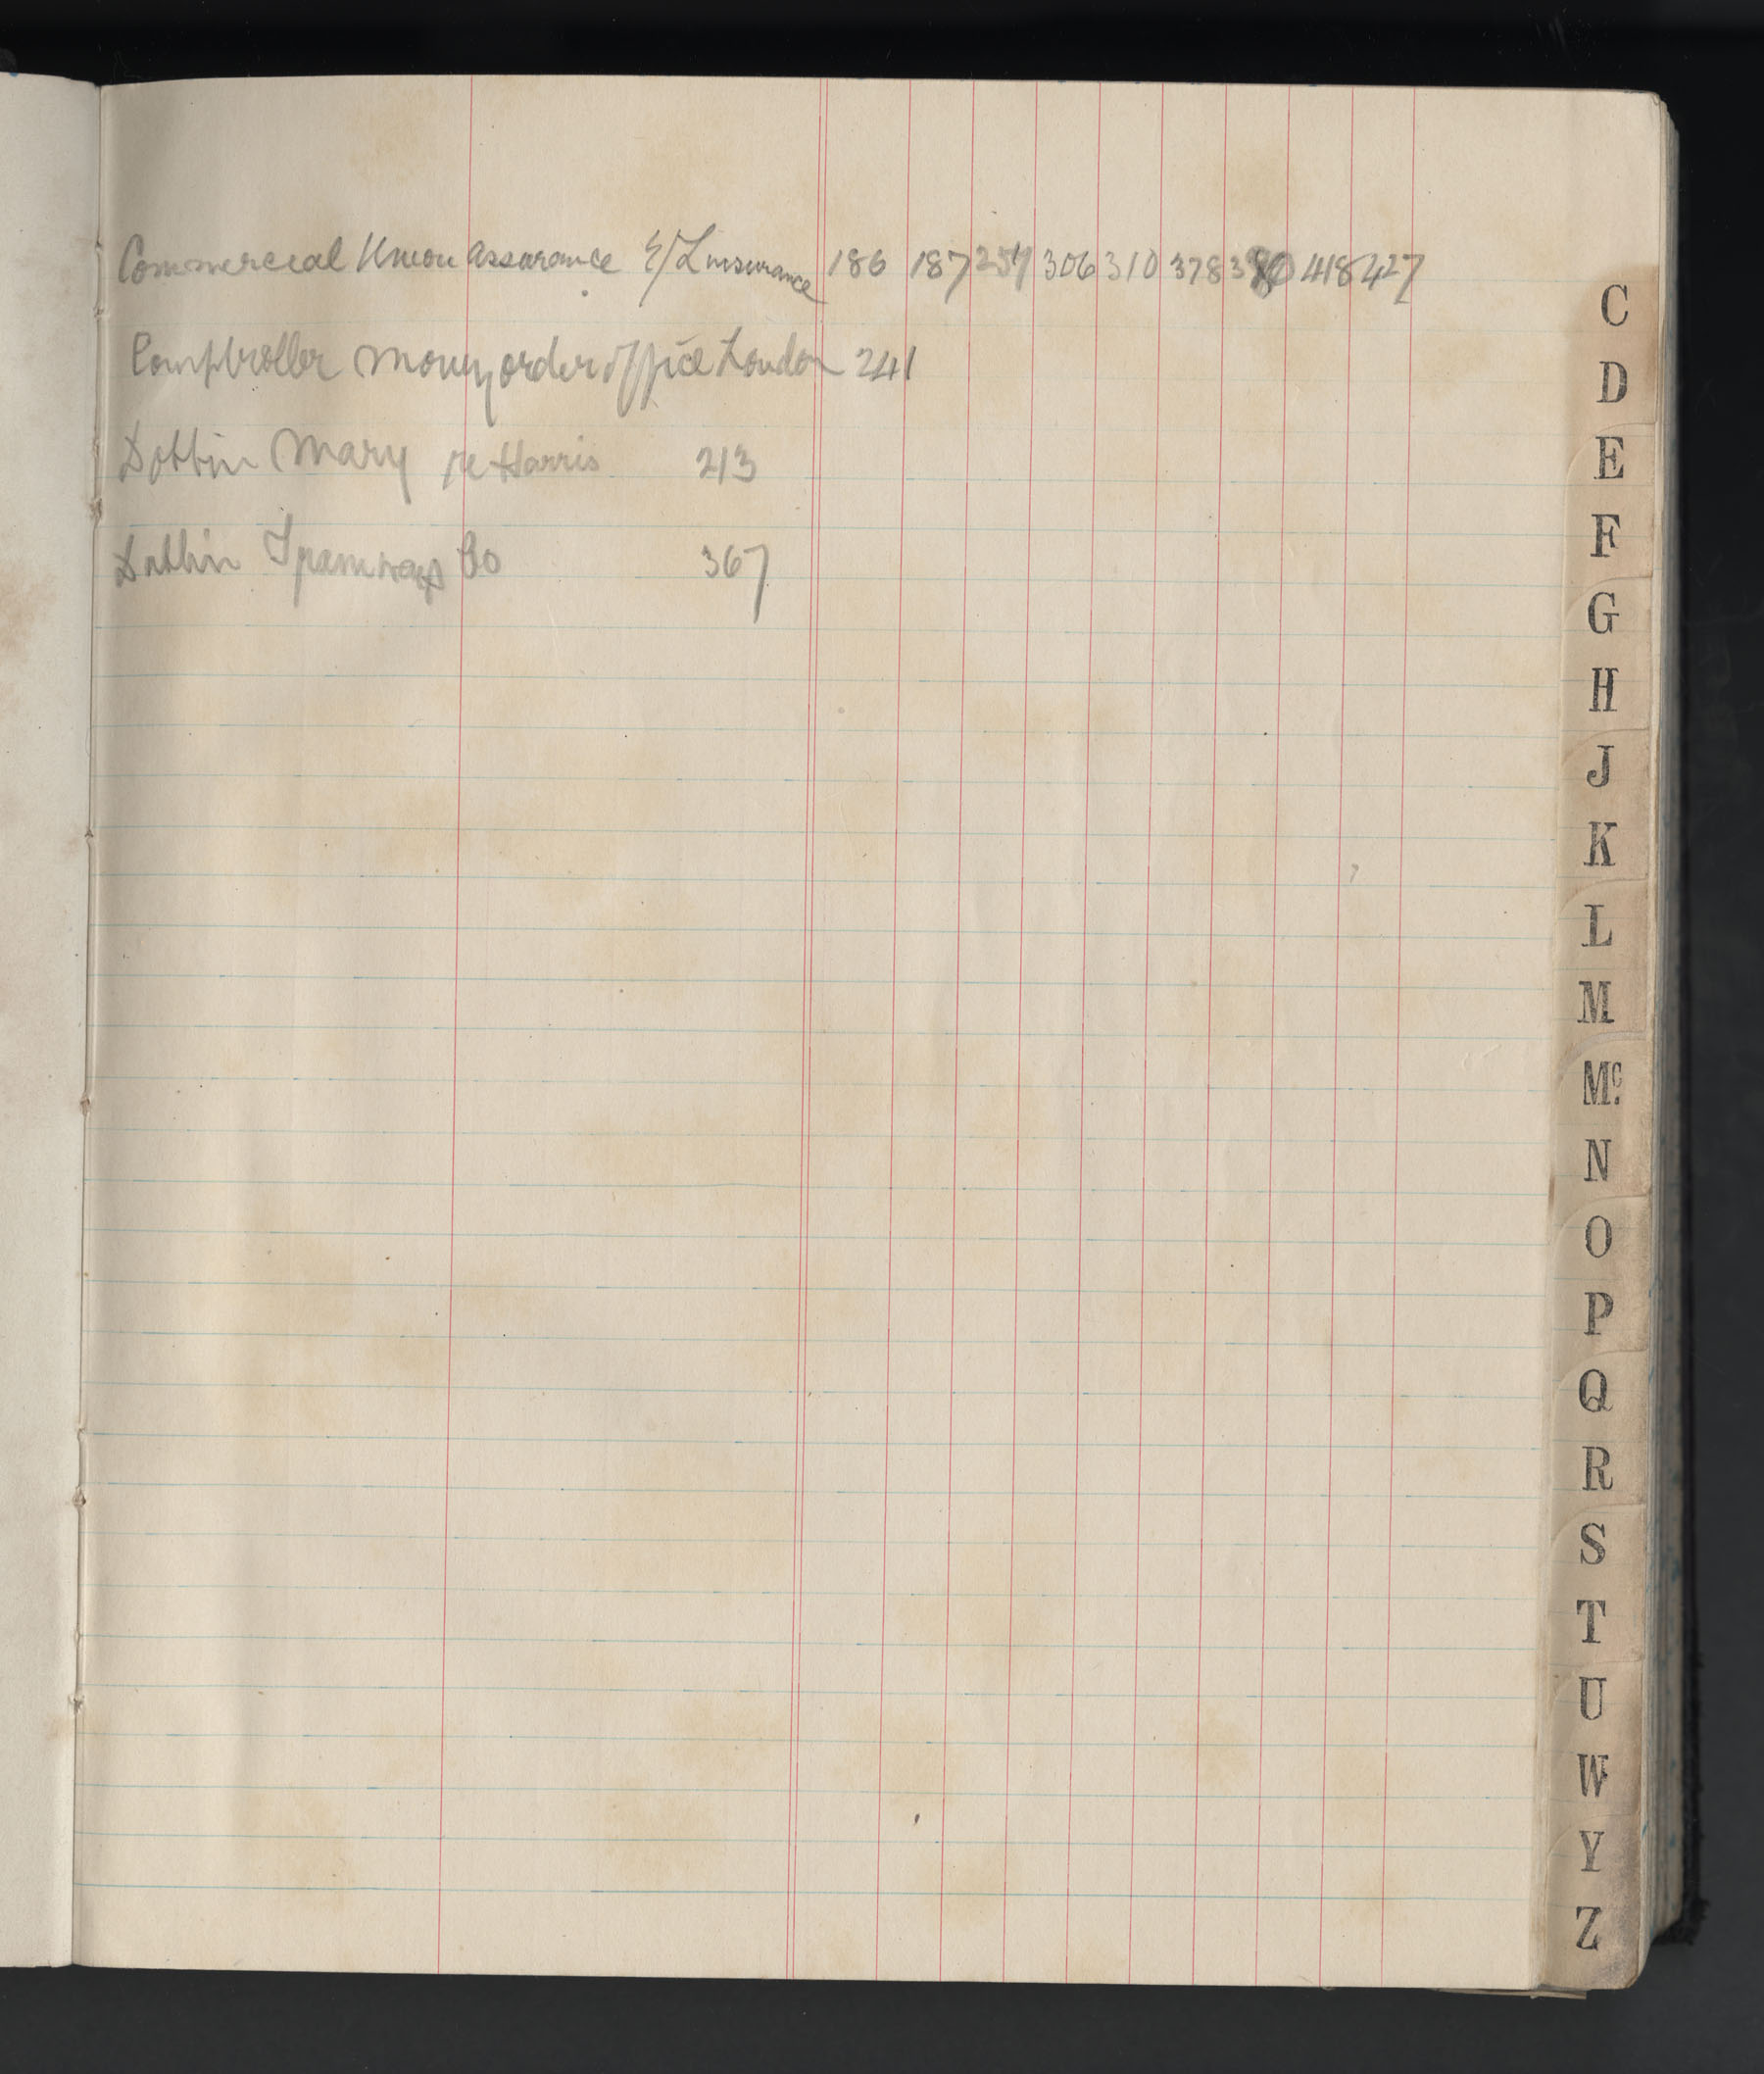 Commercial Union Assurance E/L Insurance 186 187 257 306 310 378 418 427
Comptroller Money order office London 241
Dobbin Mary re Harris 213
Dublin Tramways Co 367
C
D
E
F
G
H
J
K
L
M
Mc.
N
O
P
Q
R
S
T
U
W
Y
Z